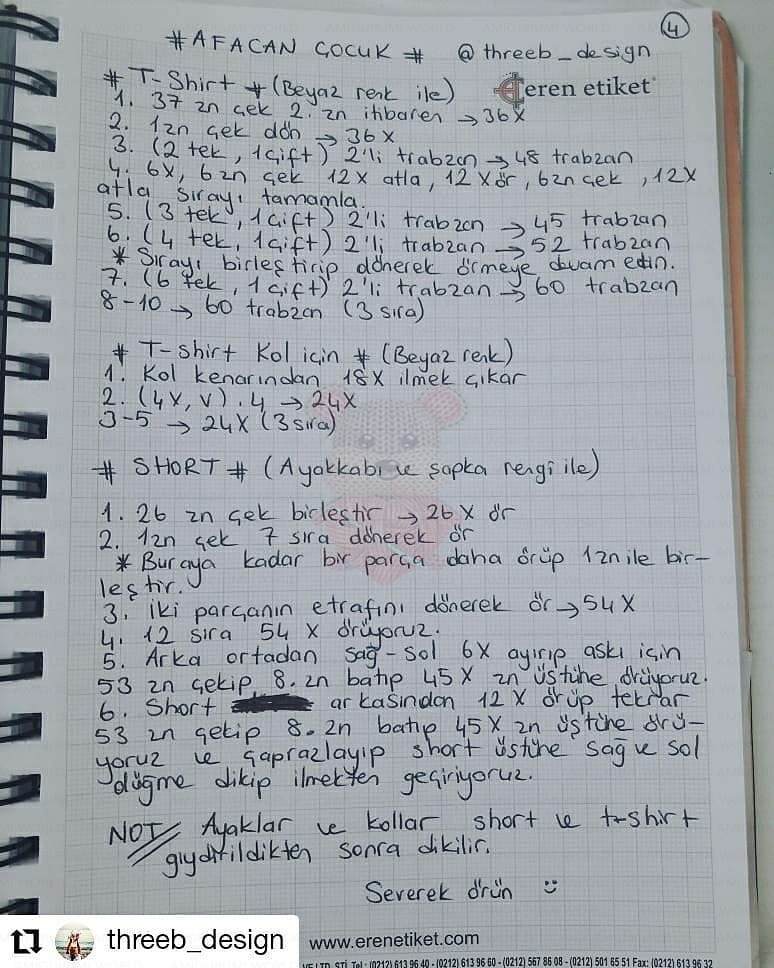 4
#AFACAN ÇOCUK# @threeb_design
# T-Shirt # (Beyaz renk ile) eren etiket
1. 37 zn çek 2. zn itibaren → 36X
2. 1zn çek dön → 36X
3. (2 tek, 1çift) 2'li trabzan → 48 trabzan
4. 6X, 6zn çek 12X atla, 12 X ör, 6zn çek, 12X
atla sırayı tamamla.
5. (3 tek, 1çift) 2'li trabzan → 45 trabzan
6. (4 tek, 1çift) 2'li trabzan → 52 trabzan
* Sırayı birleştirip dönerek örmeye devam edin.
7. (6 tek, 1çift) 2'li trabzan → 60 trabzan
8-10 → 60 trabzan (3 sıra)
# T-shirt Kol için # (Beyaz renk)
1. Kol kenarından 18X ilmek çıkar
2. (4X, V).4 → 24X
3-5 → 24X (3 sıra)
# SHORT # (Ayakkabı ve şapka rengi ile)
1. 26 zn çek birleştir → 26 X ör
2. 1zn çek 7 sıra dönerek ör
* Buraya kadar bir parça daha örüp 1zn ile bir-
leştir.
3. İki parçanın etrafını dönerek ör → 54X
4. 12 sıra 54 X örüyoruz.
5. Arka ortadan sağ-sol 6X ayırıp askı için
53 zn çekip 8. zn batıp 45X zn üstüne örüyoruz.
6. Short arkasından 12X örüp tekrar
53 zn çekip 8. zn batıp 45X zn üstüne örü-
yoruz ve çaprazlayıp short üstüne sağ ve sol
düğme dikip ilmekten geçiriyoruz.
NOT Ayaklar ve kollar short ve t-shirt
giydirildikten sonra dikilir.
Severek örün
threeb_design
www.erenetiket.com
VE LTD. ŞTİ. Tel.: (0212) 613 96 40 - (0212) 613 96 60 - (0212) 567 86 08 - (0212) 501 65 51 Fax: (0212) 613 96 32